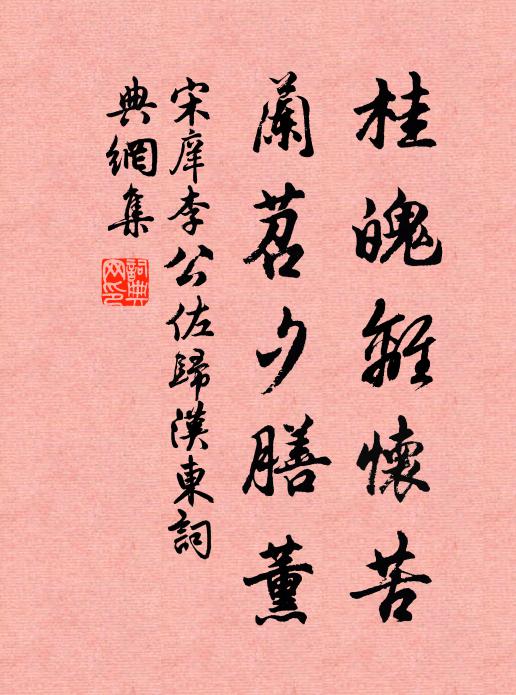 桂魄離懷苦
蘭苕夕膳薰
宋庠李公佐歸漢東詞
典網集
詞典網印